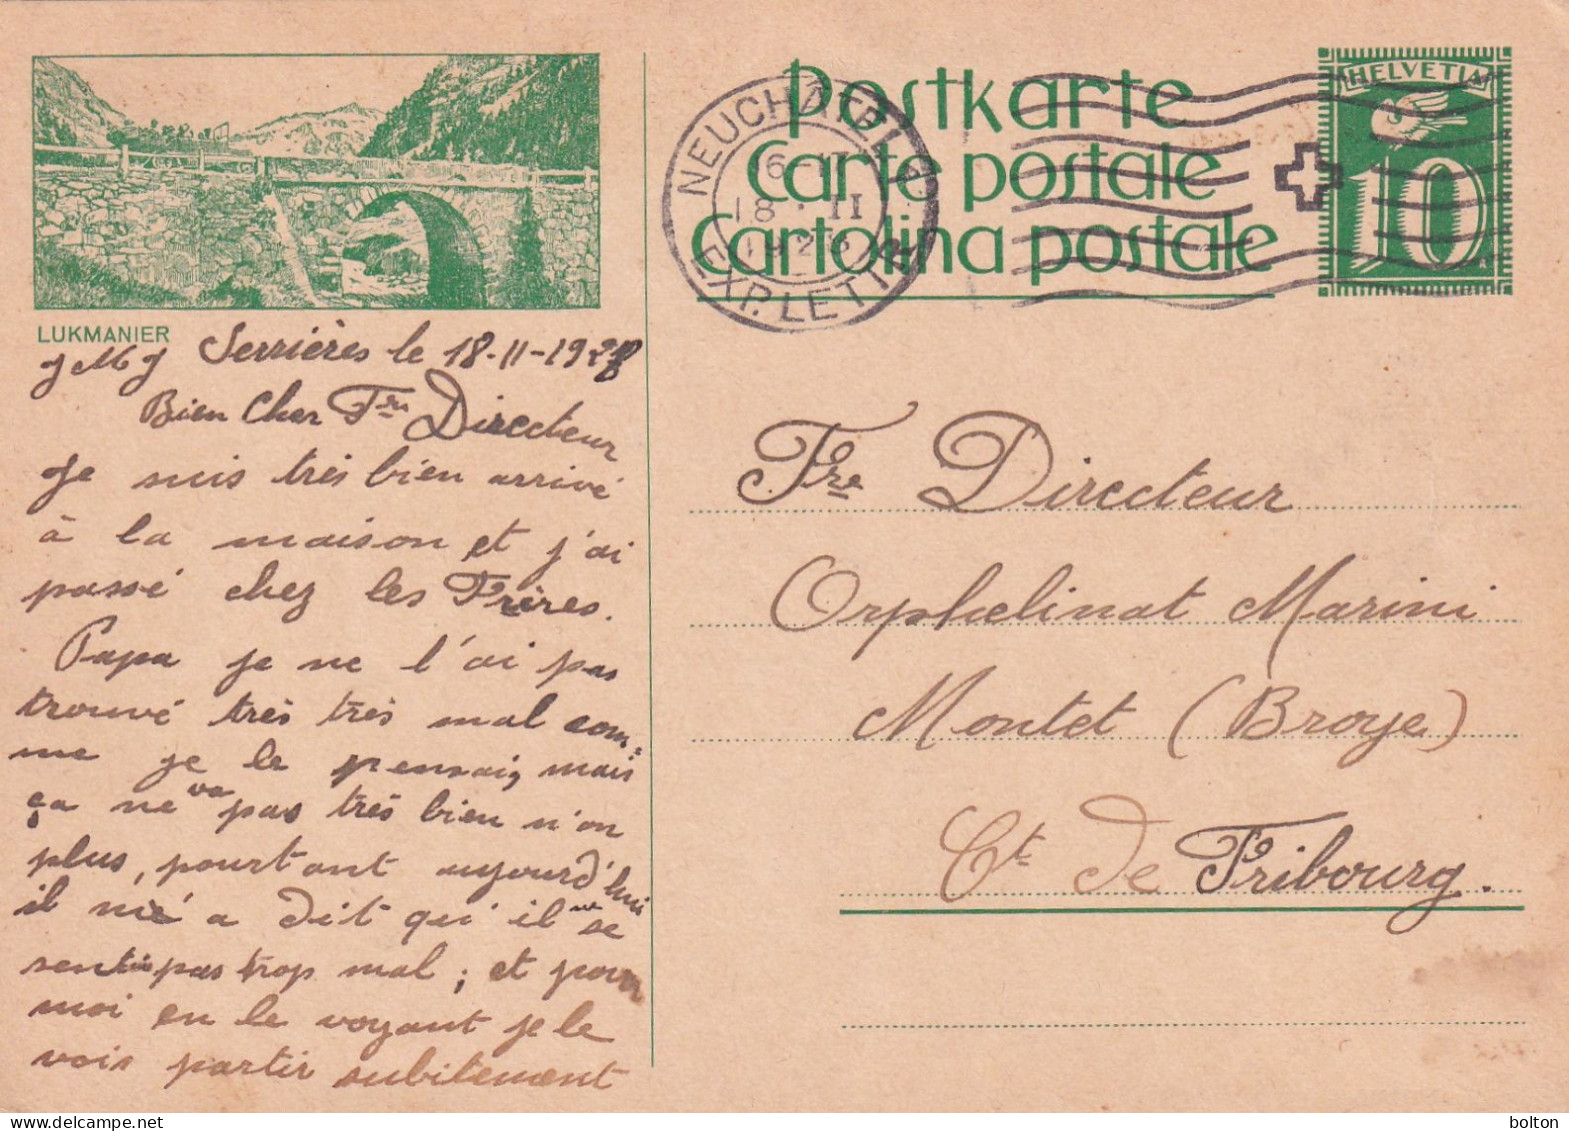 LUKMANIER
J M J Serrières le 18-II-1928
Bien Cher Fre Directeur
Je suis très bien arrivé
à la maison et j'ai
passé chez les Frères.
Papa je ne l'ai pas
trouvé très très mal com=
me je le pensai, mais
ça ne va pas très bien n'on
plus, pourtant aujourd'hui
il m'é a dit qu'il ne se
sentis pas trop mal; et pour
moi en le voyant je le
vois partir subitement
Postkarte
Carte postale
Cartolina postale
NEUCHÂTEL
18·II
EXP. LETTR.
HELVETIA
10
Fre Directeur
Orphelinat Marini
Montet (Broye)
Ct de Fribourg.
bolton